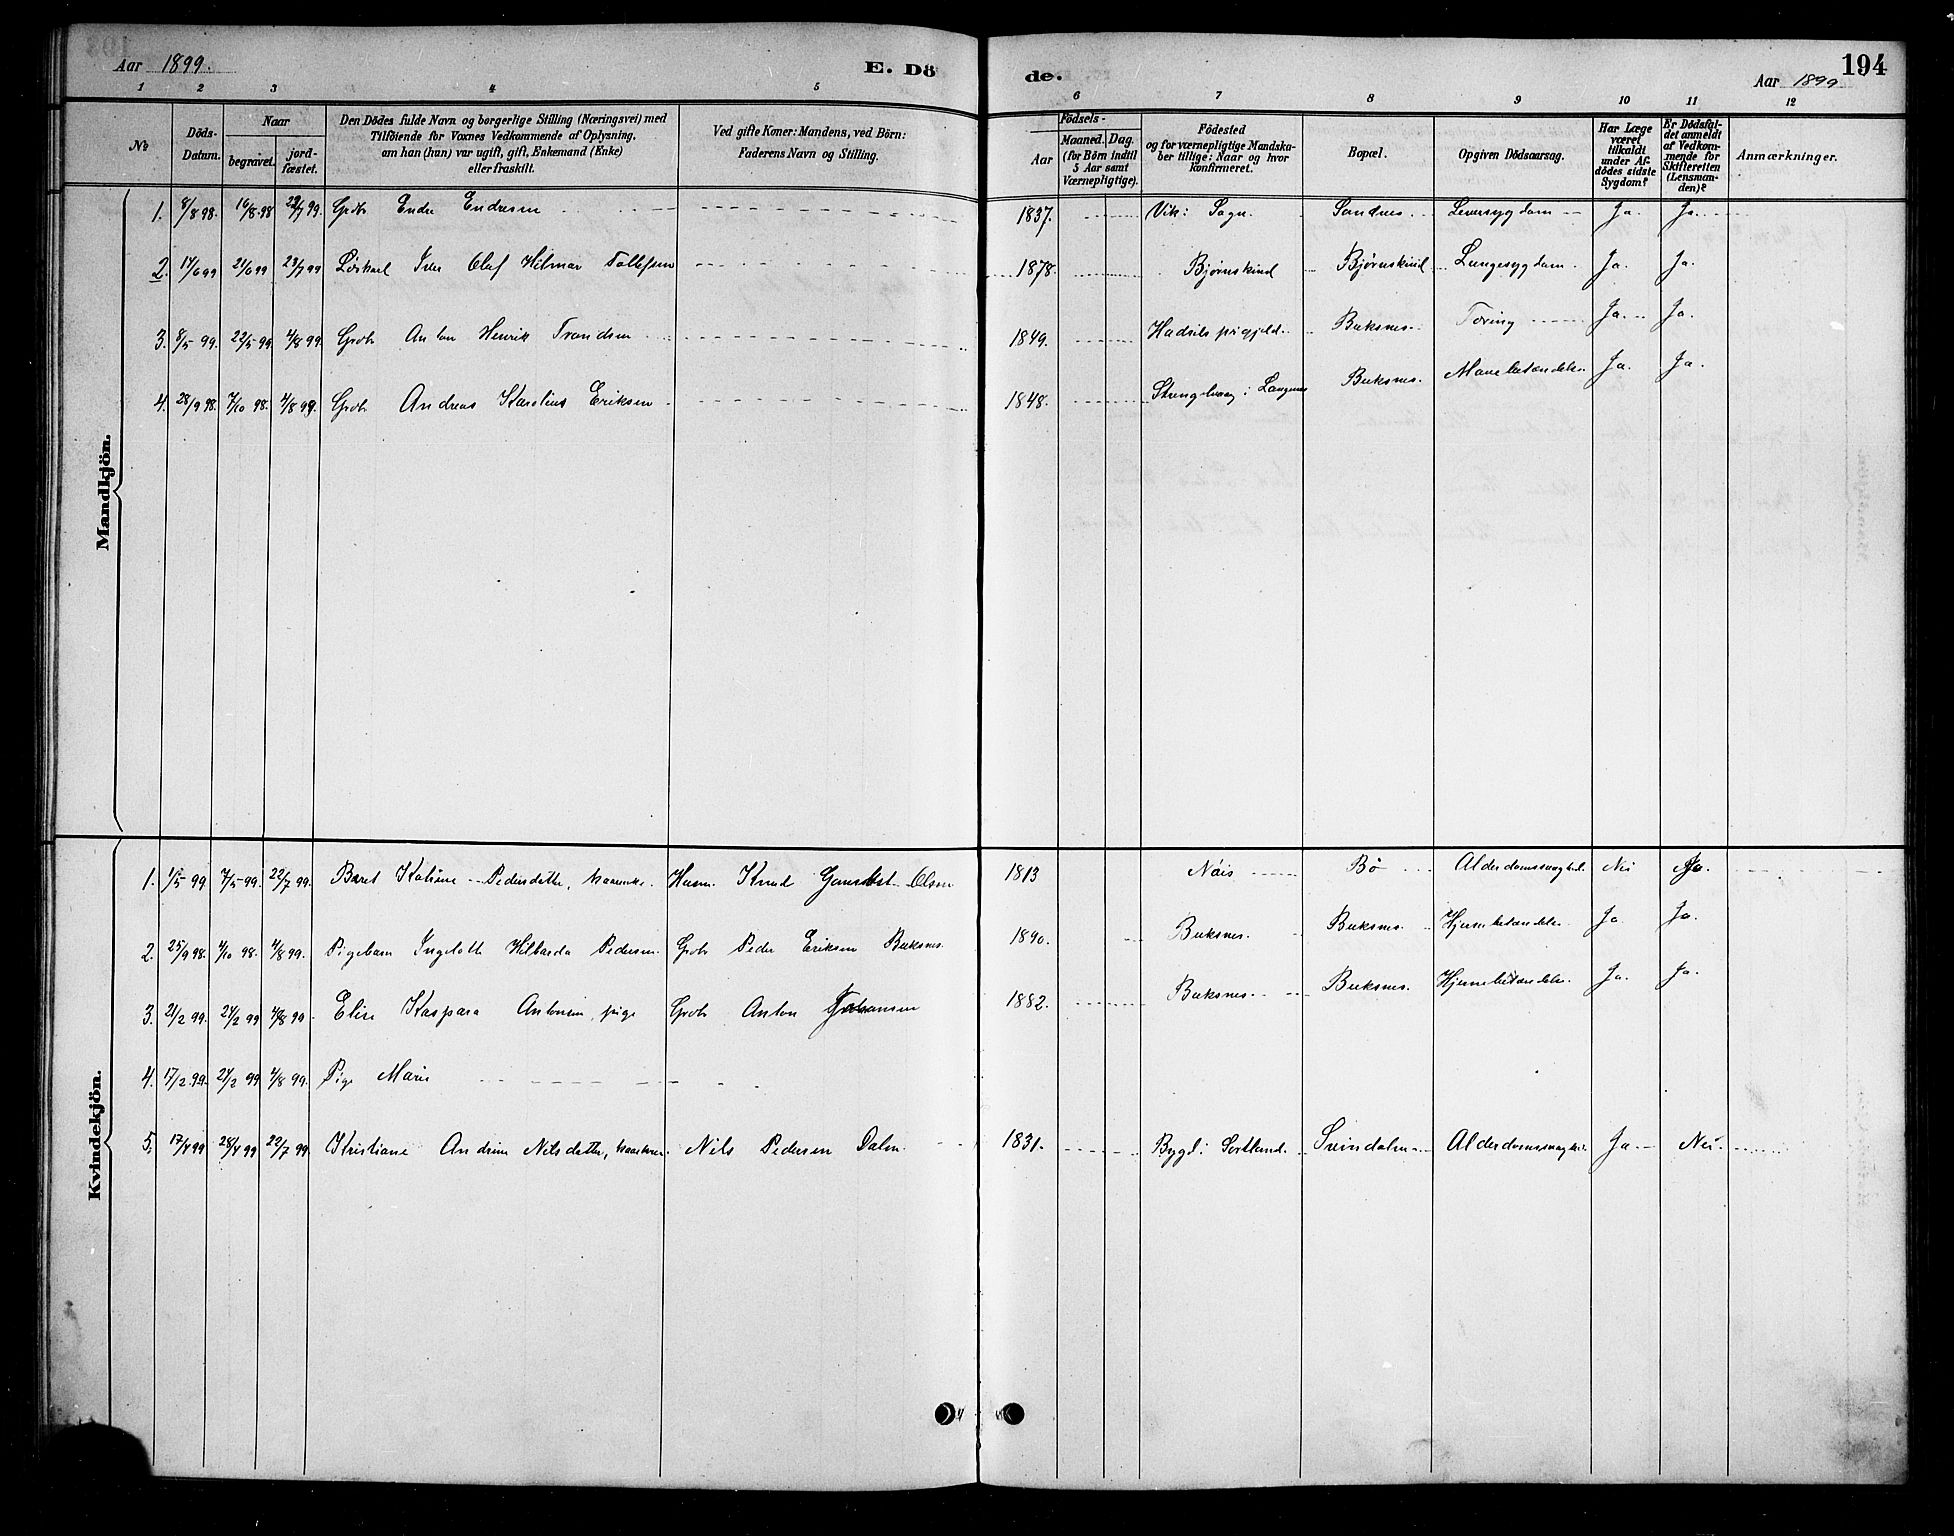 Aar 1899. E. Dö
de. Aar 1899 194
1 2 3 4 5 6 7 8 9 10 11 12
№
Döds-Datum.
Naar
begravet.
jord-fæstet.
Den Dödes fulde Navn og borgerlige Stilling (Næringsvei) med
Tilföiende for Voxnes Vedkommende af Oplysning,
om han (hun) var ugift, gift, Enkemand (Enke)
eller fraskilt.
Ved gifte Koner: Mandens, ved Börn:
Faderens Navn og Stilling.
Födsels-
Aar
Maaned. Dag.
(for Börn indtil
5 Aar samt
Værnepligtige).
Födested
og for værnepligtige Mandska-
ber tillige: Naar og hvor
konfirmeret.
Bopæl.
Opgiven Dödsaarsag.
Har Læge
været
tilkaldt
under Af-
dödes sidste
Sygdom?
Er Dödsfal-
det anmeldt
af Vedkom-
mende for
Skifteretten
(Lensman-
den)?
Anmærkninger.
Mandkjön.
1. 8/8 98. 16/8 98 22/7 99. Grdb Endre Endresen 1837. Vik i Sogn Sandnes Leversygdom Ja. Ja.
2. 14/6 99 21/6 99 23/7 99 Löskarl Olaf Hilmar Tollefsen 1878. Bjørnskind Bjørnskind Lungesygdom. Ja. Ja.
3. 8/5 99. 22/5 99. 4/8 99. Grdb Anton Henrik Trondsen 1849. Hadsels prgjeld. Buksnes. Tæring Ja. Ja.
4. 28/9 98. 7/10 98. 4/8 99. Grdb Andreas Karolius Eriksen 1848. i Langenes Buksnes. Mavebetændelse Ja. Ja.
Kvindekjön.
1. 1/5 99. 7/5 99. 22/7 99. Beret Katrine Pedersdatter, Husm. Knud Olsen 1813 Nöis Bø Alderdomssvaghed. Nei Ja.
2. 25/9 98. 4/10 98. 4/8 99. Pigebarn Ingelotte Hilbarda Pedersen. Grdb Peder Eriksen Buksnes 1890. Buksnes. Buksnes. Hjernebetændelse. Ja Ja.
3. 21/2 99. 24/2 99 4/8 99. Elise Kaspara Antonsen, pige Grdb Anton Johansen 1882. Buksnes. Buksnes. Hjernebetændelse. Ja. Ja.
4. 17/2 99. 24/2 99 4/8 99. Pige Marie
5. 17/4 99 28/4 99 22/7 99. Kristiane Andrine Nilsdatter, Nils Pedersen Dalen 1831. Bygd i Sortland. Svindalen Alderdomssvaghed. Ja Nei.